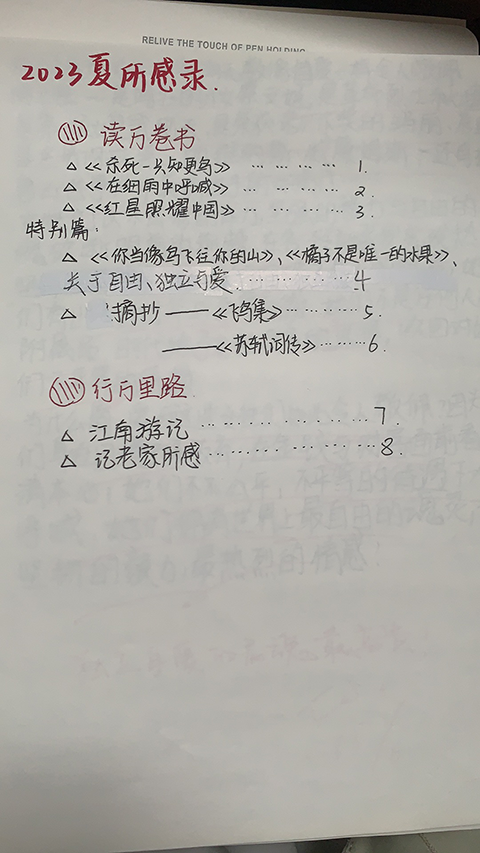 RELIVE THE TOUCH OF PEN HOLDING
2023夏所感录.
读万卷书
△《杀死一只知更鸟》………… 1.
△《在细雨中呼喊》………… 2.
△《红星照耀中国》………… 3.
特别篇:
△《你当像鸟飞往你的山》、《橘子不是唯一的水果》、
关于自由、独立与爱…………4
△ 摘抄——《飞鸟集》………5.
——《苏轼词传》………6.
行万里路
△ 江南游记…………7.
△ 记老家所感…………8.